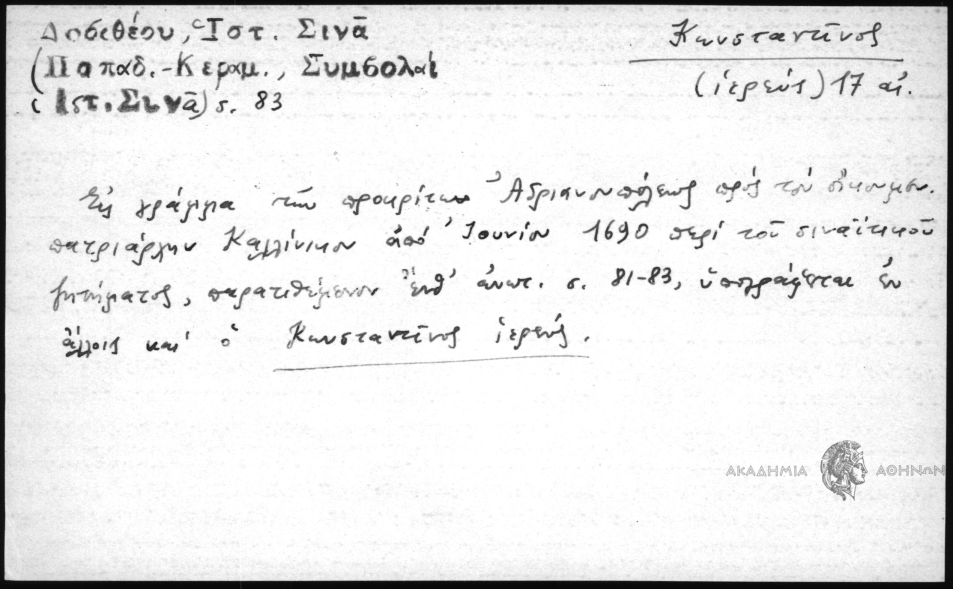 Δοσιθέου, Ἱστ. Σινᾶ
(Παπαδ.-Κεραμ., Συμβολαί
ἱ Ἱστ. Σινᾶ) σ. 83
Κωνσταντῖνος
(ἱερεύς) 17 αἰ.
Εἰς γράμμα τῶν προκρίτων Ἀδριανουπόλεως πρός τόν οἰκουμεν.
πατριάρχην Καλλίνικον ἀπό Ἰουνίου 1690 περί τοῦ σιναϊτικοῦ
ζητήματος, παρατιθέμενον ἐνθ' ἀνωτ. σ. 81-83, ὑπογράφεται ἐν
ἄλλοις καί ὁ Κωνσταντῖνος ἱερεύς.
ΑΚΑΔΗΜΙΑ ΑΘΗΝΩΝ